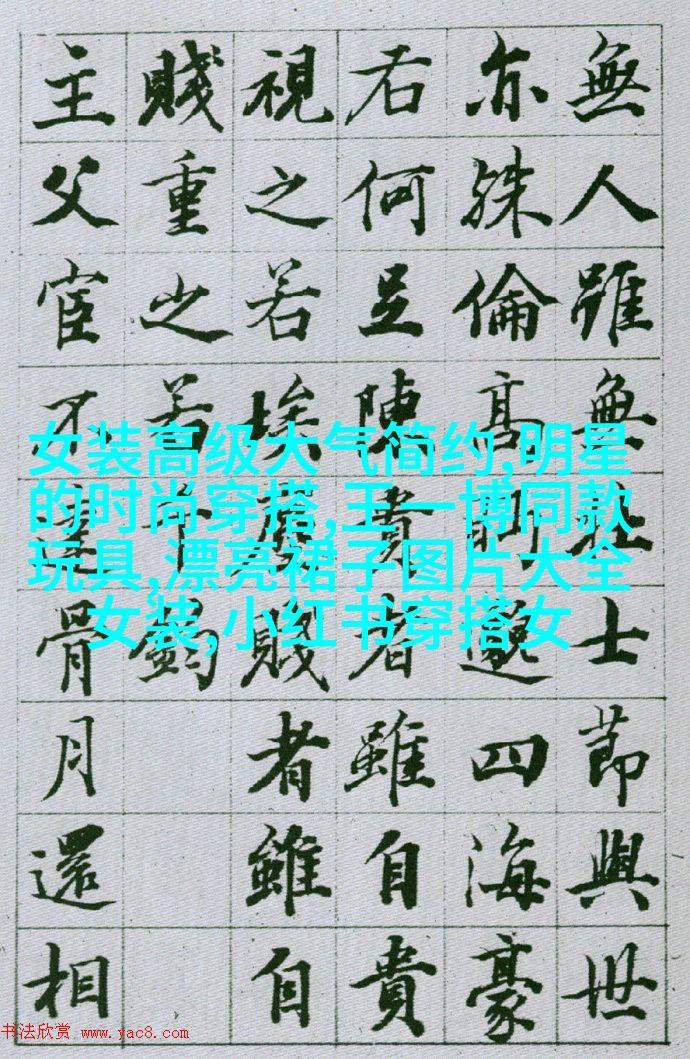 無人雖無壯士節與世
亦殊倫高眄邈四海豪
右何足陳貴者雖自貴
視之若埃塵賤者雖自
賤重之若千鈞
主父宦不達骨月還相
女装高级大气简约,明星
的时尚穿搭,王一博同款
玩具,漂亮裙子图片大全
女装,小红书穿搭女
书法欣赏 www.yac8.com